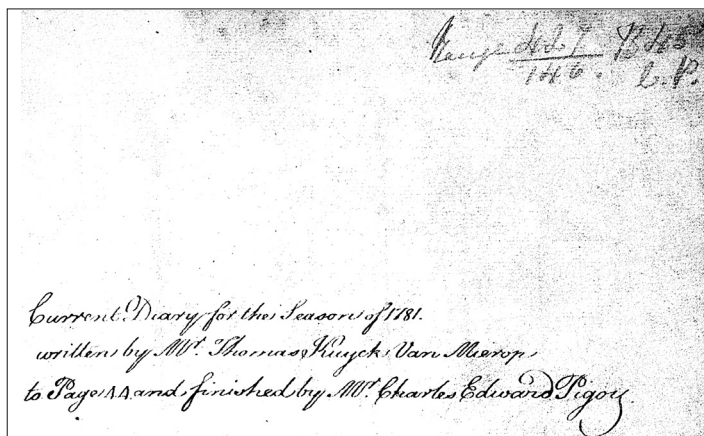 Range
146. C. P.
Current Diary for the Season of 1781.
written by Mr. Thomas Kuyck Van Mierop
to Page 44 and finished by Mr. Charles Edward Pigou